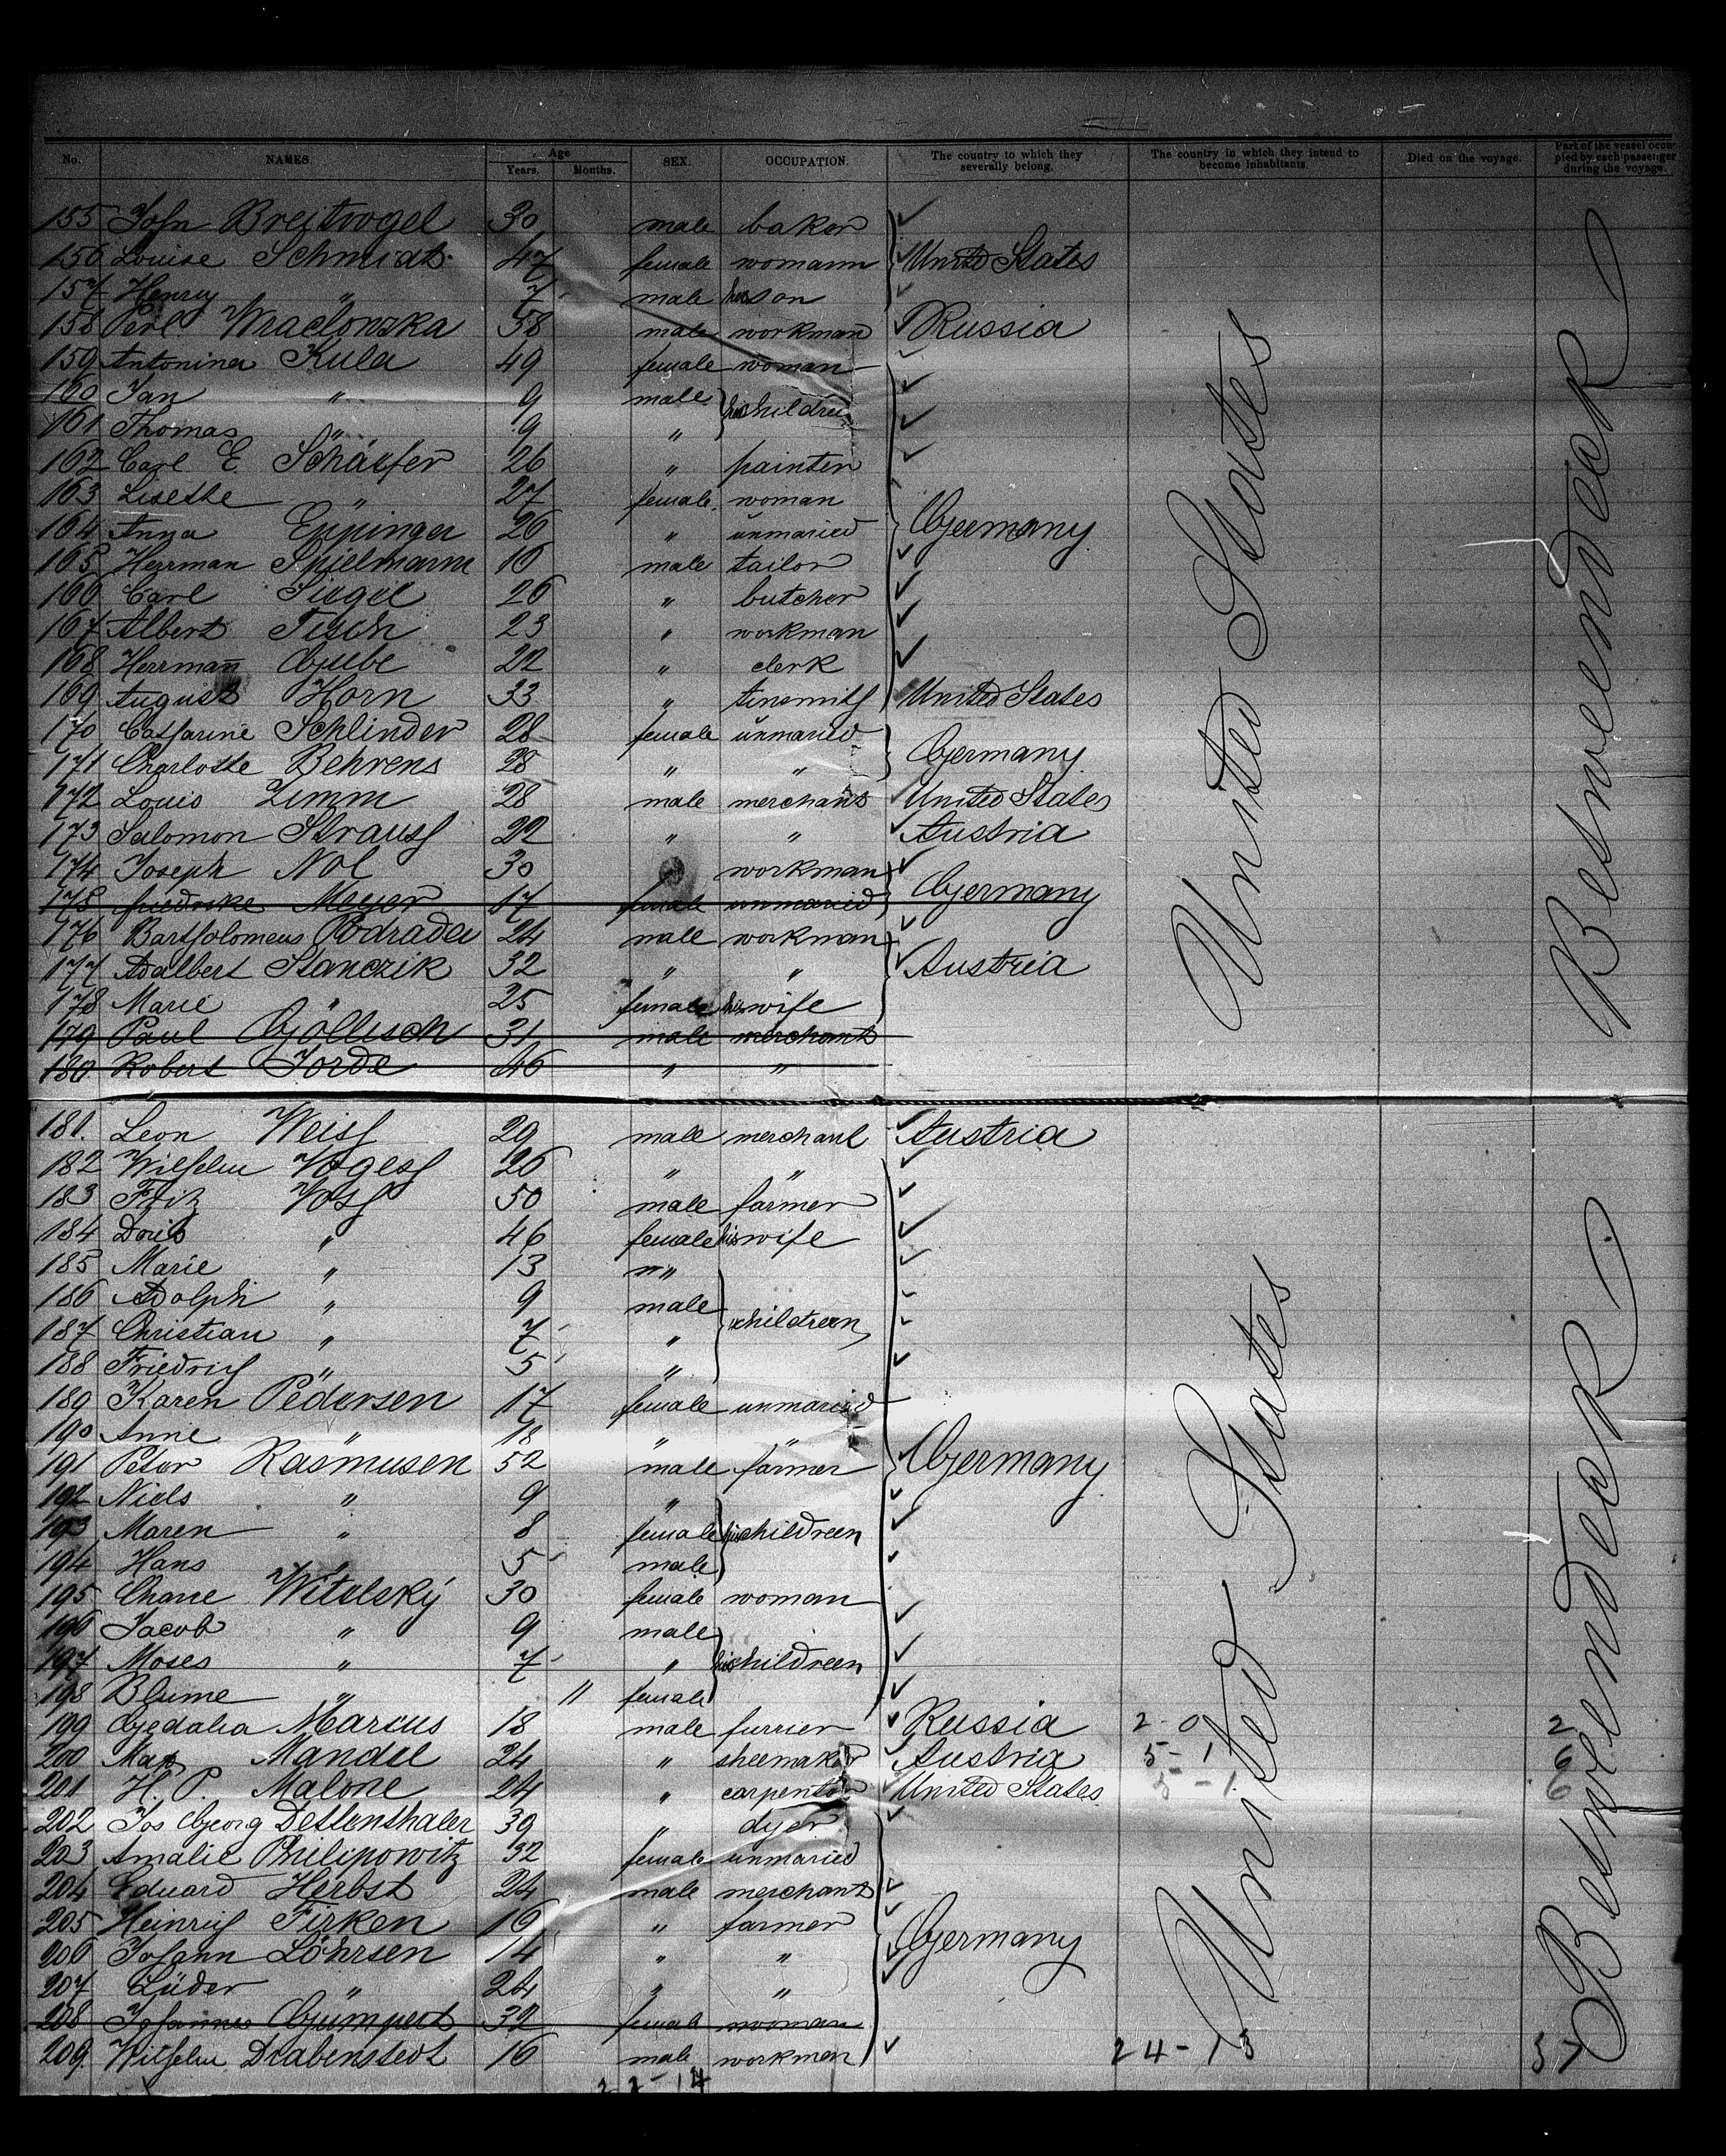 No. NAMES. Age Years. Months. SEX. OCCUPATION. The country to which they severally belong. The country in which they intend to become inhabitants. Died on the voyage. Part of the vessel occupied by each passenger during the voyage.
155 John Breitvogel 30 male baker
156 Louise Schmidt 47 female womann United States
157 Henry " 7 male her son
158 Perl Wraclowska 58 male workman Russia
159 Antonina Kula 49 female woman
160 Jan " 9 male her children
161 Thomas " 9 "
162 Carl E. Schäffer 26 " painter
163 Lisette " 27 female woman
164 Anna Eppinger 26 " unmaried Germany
165 Herrman Spielmann 16 male tailor
166 Carl Siegel 26 " butcher
167 Albert Tisch 23 " workman
168 Herrmann Gube 22 " clerk
169 August Horn 33 " tinsmith United States
170 Catharine Schlinder 28 female unmaried
171 Charlotte Behrens 28 " " Germany
172 Louis Zimm 28 male merchant United States
173 Salomon Strauss 22 " " Austria
174 Joseph Nol 30 workman
175 Meyer 17 female unmaried Germany
176 Bartholomeus Podrada 24 male workman
177 Adalbert Stanczik 32 " " Austria
178 Marie " 25 female his wife
179 Paul Göllisch 31 male merchant
180 Robert Jorde 46 " "
United States
Betweendeck
181. Leon Weiss 29 male merchant Austria
182 Wilhelm Vogess 26 " "
183 Fritz Voss 50 male farmer
184 Doris " 46 female his wife
185 Marie " 13 "
186 Adolph " 9 male children
187 Christian " 7 "
188 Friedrich " 5 "
189 Karen Pedersen 17 female unmaried
190 Anne " 18 " "
191 Peter Rasmusen 52 male farmer Germany
192 Niels " 9 "
193 Maren " 8 female his childreen
194 Hans " 5 male
195 Chane Witelsky 30 female woman
196 Jacob " 9 male
197 Moses " 7 " her childreen
198 Blume " 11 female
199 Gedalia Marcus 18 male furrier Russia 2-0 2
200 Max Mandel 24 " sheemaker Austria 5-1 6
201 H. P. Malone 24 " carpenter United States 5-1 6
202 Jos Georg Dettenthaler 39 " dyer
203 Amalie Philipowitz 32 female unmaried
204 Eduard Herbst 24 male merchant
205 Heinrich Firken 16 " farmer
206 Johann Löhrsen 14 " " Germany
207 Lüder " 24 " "
208 Johannes Gumpert 32 female woman
209. Wilhelm Drabenstedt 16 male workman 24-13 37
United States
Betweendeck